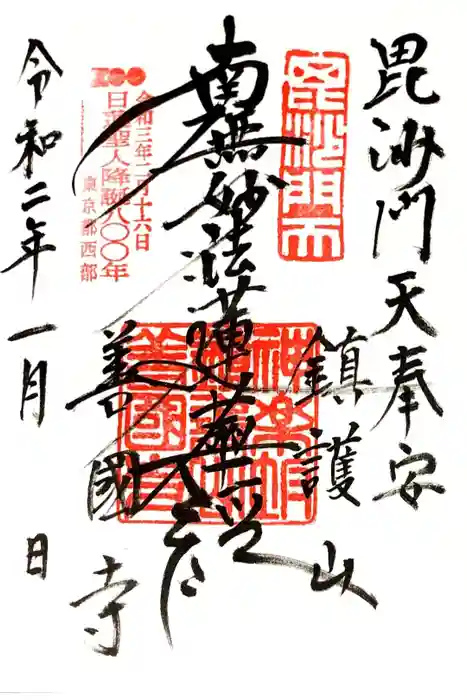 毘沙門天奉安
鎮護山
南無妙法蓮華経
善國寺
令和三年二月十六日
日蓮聖人降誕八〇〇年
東京都西部
令和二年一月 日
毘沙門天